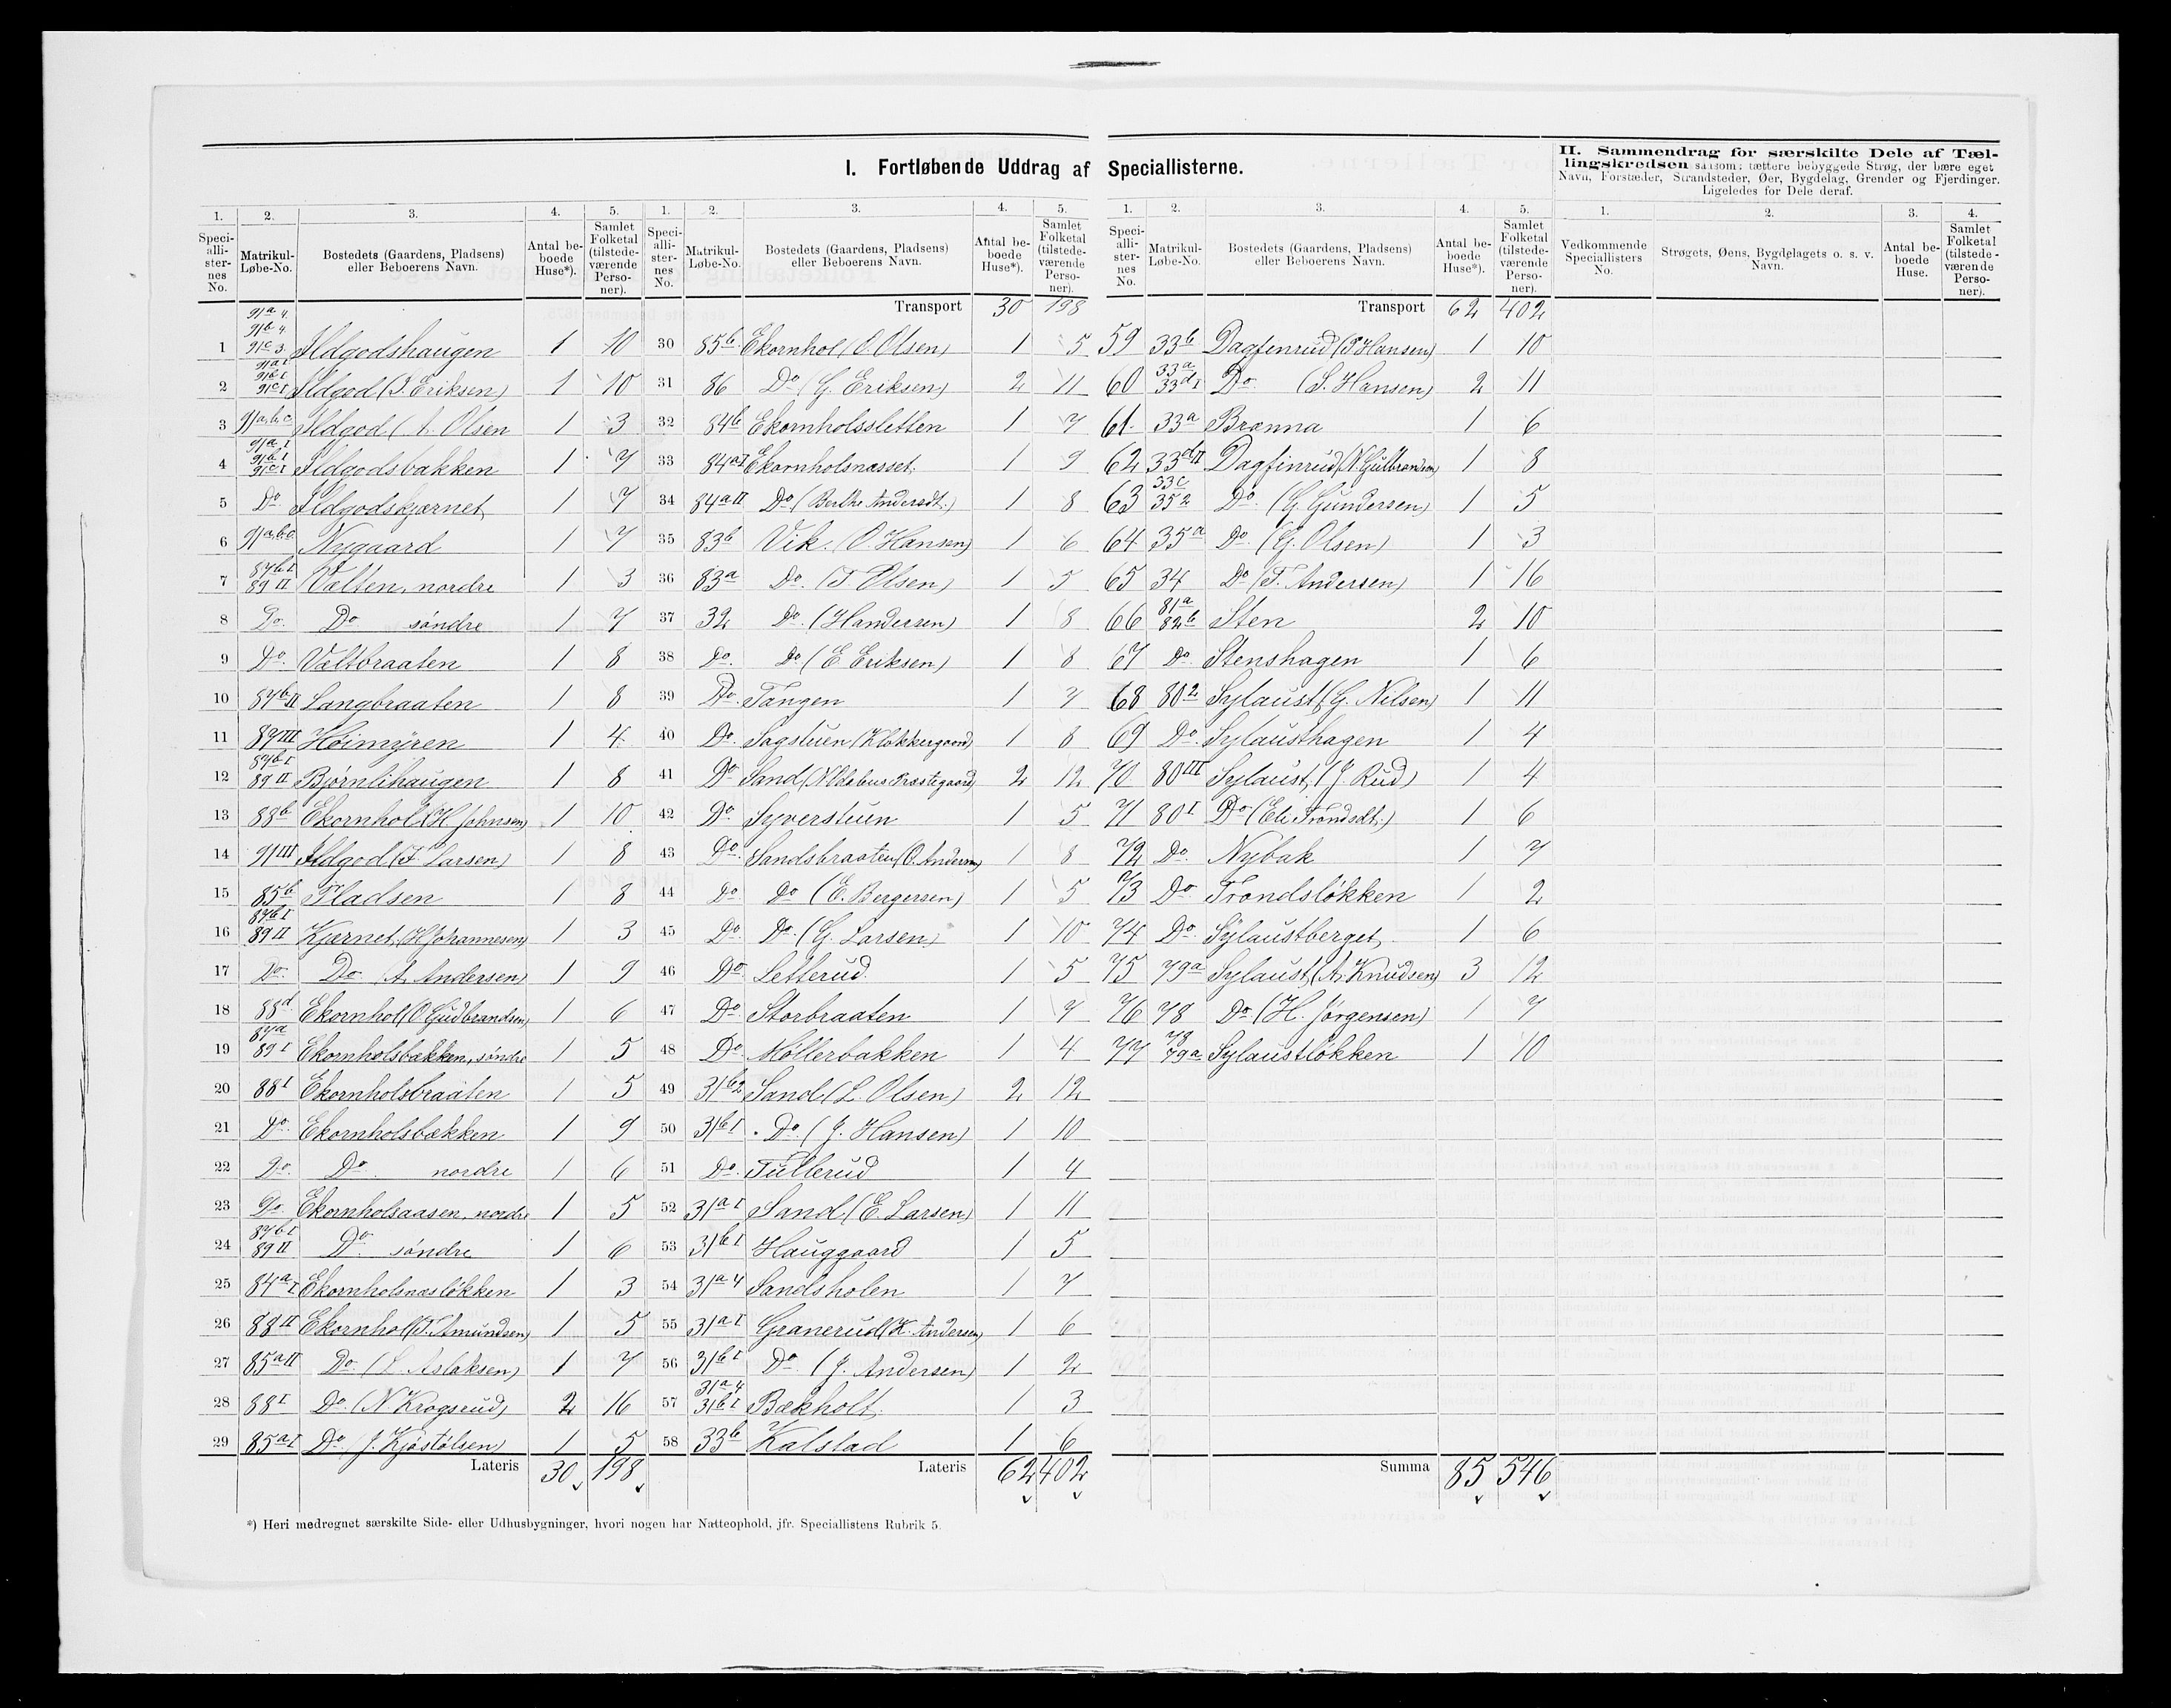 I. Fortløbende Uddrag af Speciallisterne.
1. 2. 3. 4. 5.
Speciallisternes No. Matrikul-Løbe-No. Bostedets (Gaardens, Pladsens) eller Beboerens Navn. Antal beboede Huse*). Samlet Folketal (tilstedeværende Personer).
1 91a4 91b4 91c3 Ildgodshaugen 1 10
2 91aI 91bI 91cI Ildgod (J. Eriksen) 1 10
3 91a,b,c Ildgod ( Olsen 1 3
4 91aI 91bI 91cI Ildgodsbakken 1 7
5 Do Ildgodskjærnet 1 7
6 91a,b,c Nygaard 1 7
7 87bI 89II Vælten, nordre 1 3
8 Do. Do søndre 1 7
9 Do. Væltbraaten 1 8
10 87bII Langbraaten 1 8
11 89III Høimyren 1 4
12 87bI 89II Bjørnlihaugen 1 8
13 88b Ekornhol (H. Johnsen) 1 10
14 91III Ildgod (F. Larsen) 1 8
15 85b Pladsen 1 8
16 87bI 89II Kjærnet, (H. Johannesen) 1 3
17 Do. Do (A. Andersen) 1 9
18 88d Ekornhol (O. Gudbrandsen) 1 6
19 87a 89I Ekornholsbakken, søndre 1 5
20 88I Ekornholsbraaten 1 5
21 Do. Ekornholsbækken 1 9
22 Do. Do. nordre 1 6
23 Do. Ekornholsaasen, nordre 1 5
24 87bI 89II Do. søndre 1 6
25 84aI Ekornholsnæsløkken 1 3
26 88II Ekornhol (T. Amundsen) 1 5
27 85aII Do. (L. Aslaksen) 1 7
28 88I Do. (N. Krogsrud) 2 16
29 85aI Do. (J. Kjøstølsen) 1 5
Lateris 30 198
1. 2. 3. 4. 5.
Speciallisternes No. Matrikul-Løbe-No. Bostedets (Gaardens, Pladsens) eller Beboerens Navn. Antal beboede Huse*). Samlet Folketal (tilstedeværende Personer).
Transport 30 198
30 85b Ekornhol (O. Olsen) 1 5
31 86 Do (G. Eriksen) 2 11
32 84b Ekornholssletten 1 7
33 84aI Ekornholsnæsset 1 9
34 84aII Do (Berthe Andersdt.) 1 8
35 83b Vik. (O. Hansen) 1 6
36 83a Do. (T. Olsen) 1 5
37 32 Do. (H. Andersen) 1 8
38 Do. Do (E. Eriksen) 1 8
39 Do. Tangen 1 7
40 Do. Sagstuen (Klokkergaard) 1 8
41 Do Sand (N. Odalens Præstegaard) 2 12
42 Do. Syverstuen 1 5
43 Do. Sandsbraaten (O. Andersen) 1 8
44 Do Do (E. Bergersen) 1 5
45 Do. Do. (G. Larsen) 1 10
46 Do. Letterud. 1 5
47 Do. Storbraaten 1 7
48 Do. Møllerbakken 1 4
49 31b2 Sand (L. Olsen) 2 12
50 31bI Do. (J. Hansen) 1 10
51 Do. Tullerud 1 4
52 31aI Sand (E. Larsen) 1 11
53 31bI Hauggaard 1 5
54 31a4 Sandsholen 1 7
55 31aI Granerud (K. Andersen) 1 6
56 31bI Do. (J. Andersen) 1 2
57 31a4 31bI Bækholt. 1 3
58 33b Kalstad 1 6
Lateris 62 402
1. 2. 3. 4. 5.
Speciallisternes No. Matrikul-Løbe-No. Bostedets (Gaardens, Pladsens) eller Beboerens Navn. Antal beboede Huse*). Samlet Folketal (tilstedeværende Personer).
Transport 62 402
59 33b Dagfinrud (P. Hansen) 1 10
60 33a 33dI Do. (S. Hansen) 2 11
61 33a Brænna 1 6
62 33dII Dagfinrud (N. Gulbrandsen) 1 8
63 33c 352 Do. (G. Gundersen) 1 5
64 35a Do. (G. Olsen) 1 3
65 34 Do (T. Andersen) 1 16
66 81a 82b Sten 2 10
67 Do. Stenshagen 1 6
68 802 Sylaust (G. Nilsen) 1 11
69 Do. Sylausthagen 1 4
70 80III Sylaust, (J. Rud) 1 4
71 80I Do (Eli Trondsdt.) 1 6
72 Do. Nybak 1 7
73 Do Trondsløkken 1 2
74 Do. Sylaustberget 1 6
75 79a Sylaust, (A. Knudsen) 3 12
76 78 Do. (H. Jørgensen) 1 7
77 78 79a Sylaustløkken 1 10
Summa 85 546
II. Sammendrag for særskilte Dele af Tællingskredsen saasom: tættere bebyggede Strøg, der bære eget Navn, Forstæder, Strandsteder, Øer, Bygdelag, Grender og Fjerdinger. Ligeledes for Dele deraf.
1. 2. 3. 4.
Vedkommende Speciallisters No. Strøgets, Øens, Bygdelagets o. s. v. Navn. Antal beboede Huse. Samlet Folketal (tilstedeværende Personer).
*) Heri medregnet særskilte Side- eller Udhusbygninger, hvori nogen har Natteophold, jfr. Speciallistens Rubrik 5.